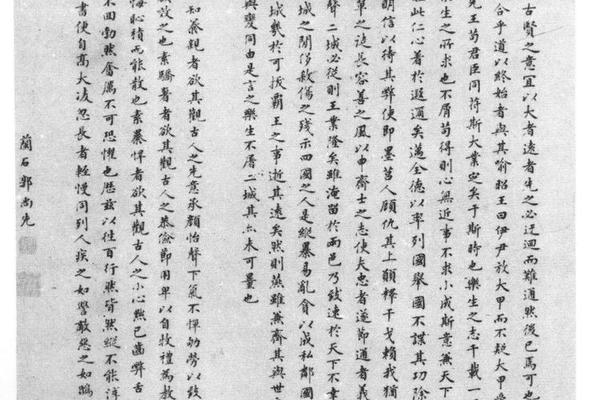 古賢之意宜以大者遠者先之必迂迴而難通然後已焉可也
合乎道以終始者與其喻昭王曰伊尹放大甲而不疑大甲受
先王苟君臣同符斯大業定矣于斯時也樂生之志千載一
生之所求也不屑苟得則心無近事不求小成斯意兼天下
此仁心著於遐邇矣邁全德以率列國舉國不謀其功除
明信以待其弊使即墨莒人顧仇其上願釋干戈賴我猶
單之徒長容善之風以申齊士之志使夫忠者遂節通者義
聲二城必從則王業隆矣雖淹留於兩邑乃致速於天下不幸
城之閒侈殺傷之殘示四國之人是縱暴易亂貪以成私鄰國
城幾於可拔霸王之事逝其遠矣然則燕雖兼齊其與世
與變同由是言之樂生不屠二城其亦未可量也
知養親者欲其觀古人之先意承顏怡聲下氣不憚劬勞以致
效之也素驕奢者欲其觀古人之恭儉節用卑以自牧禮為教
悔恥積而能散也素暴悍者欲其觀古人之小心黜己齒弊舌
不回勃然奮厲不可恐懼也歷茲以往百行然皆然縱不能淳
書便自高大凌忽長者輕慢同列人疾之如讐敵惡之如鴟
蘭石郭尚先